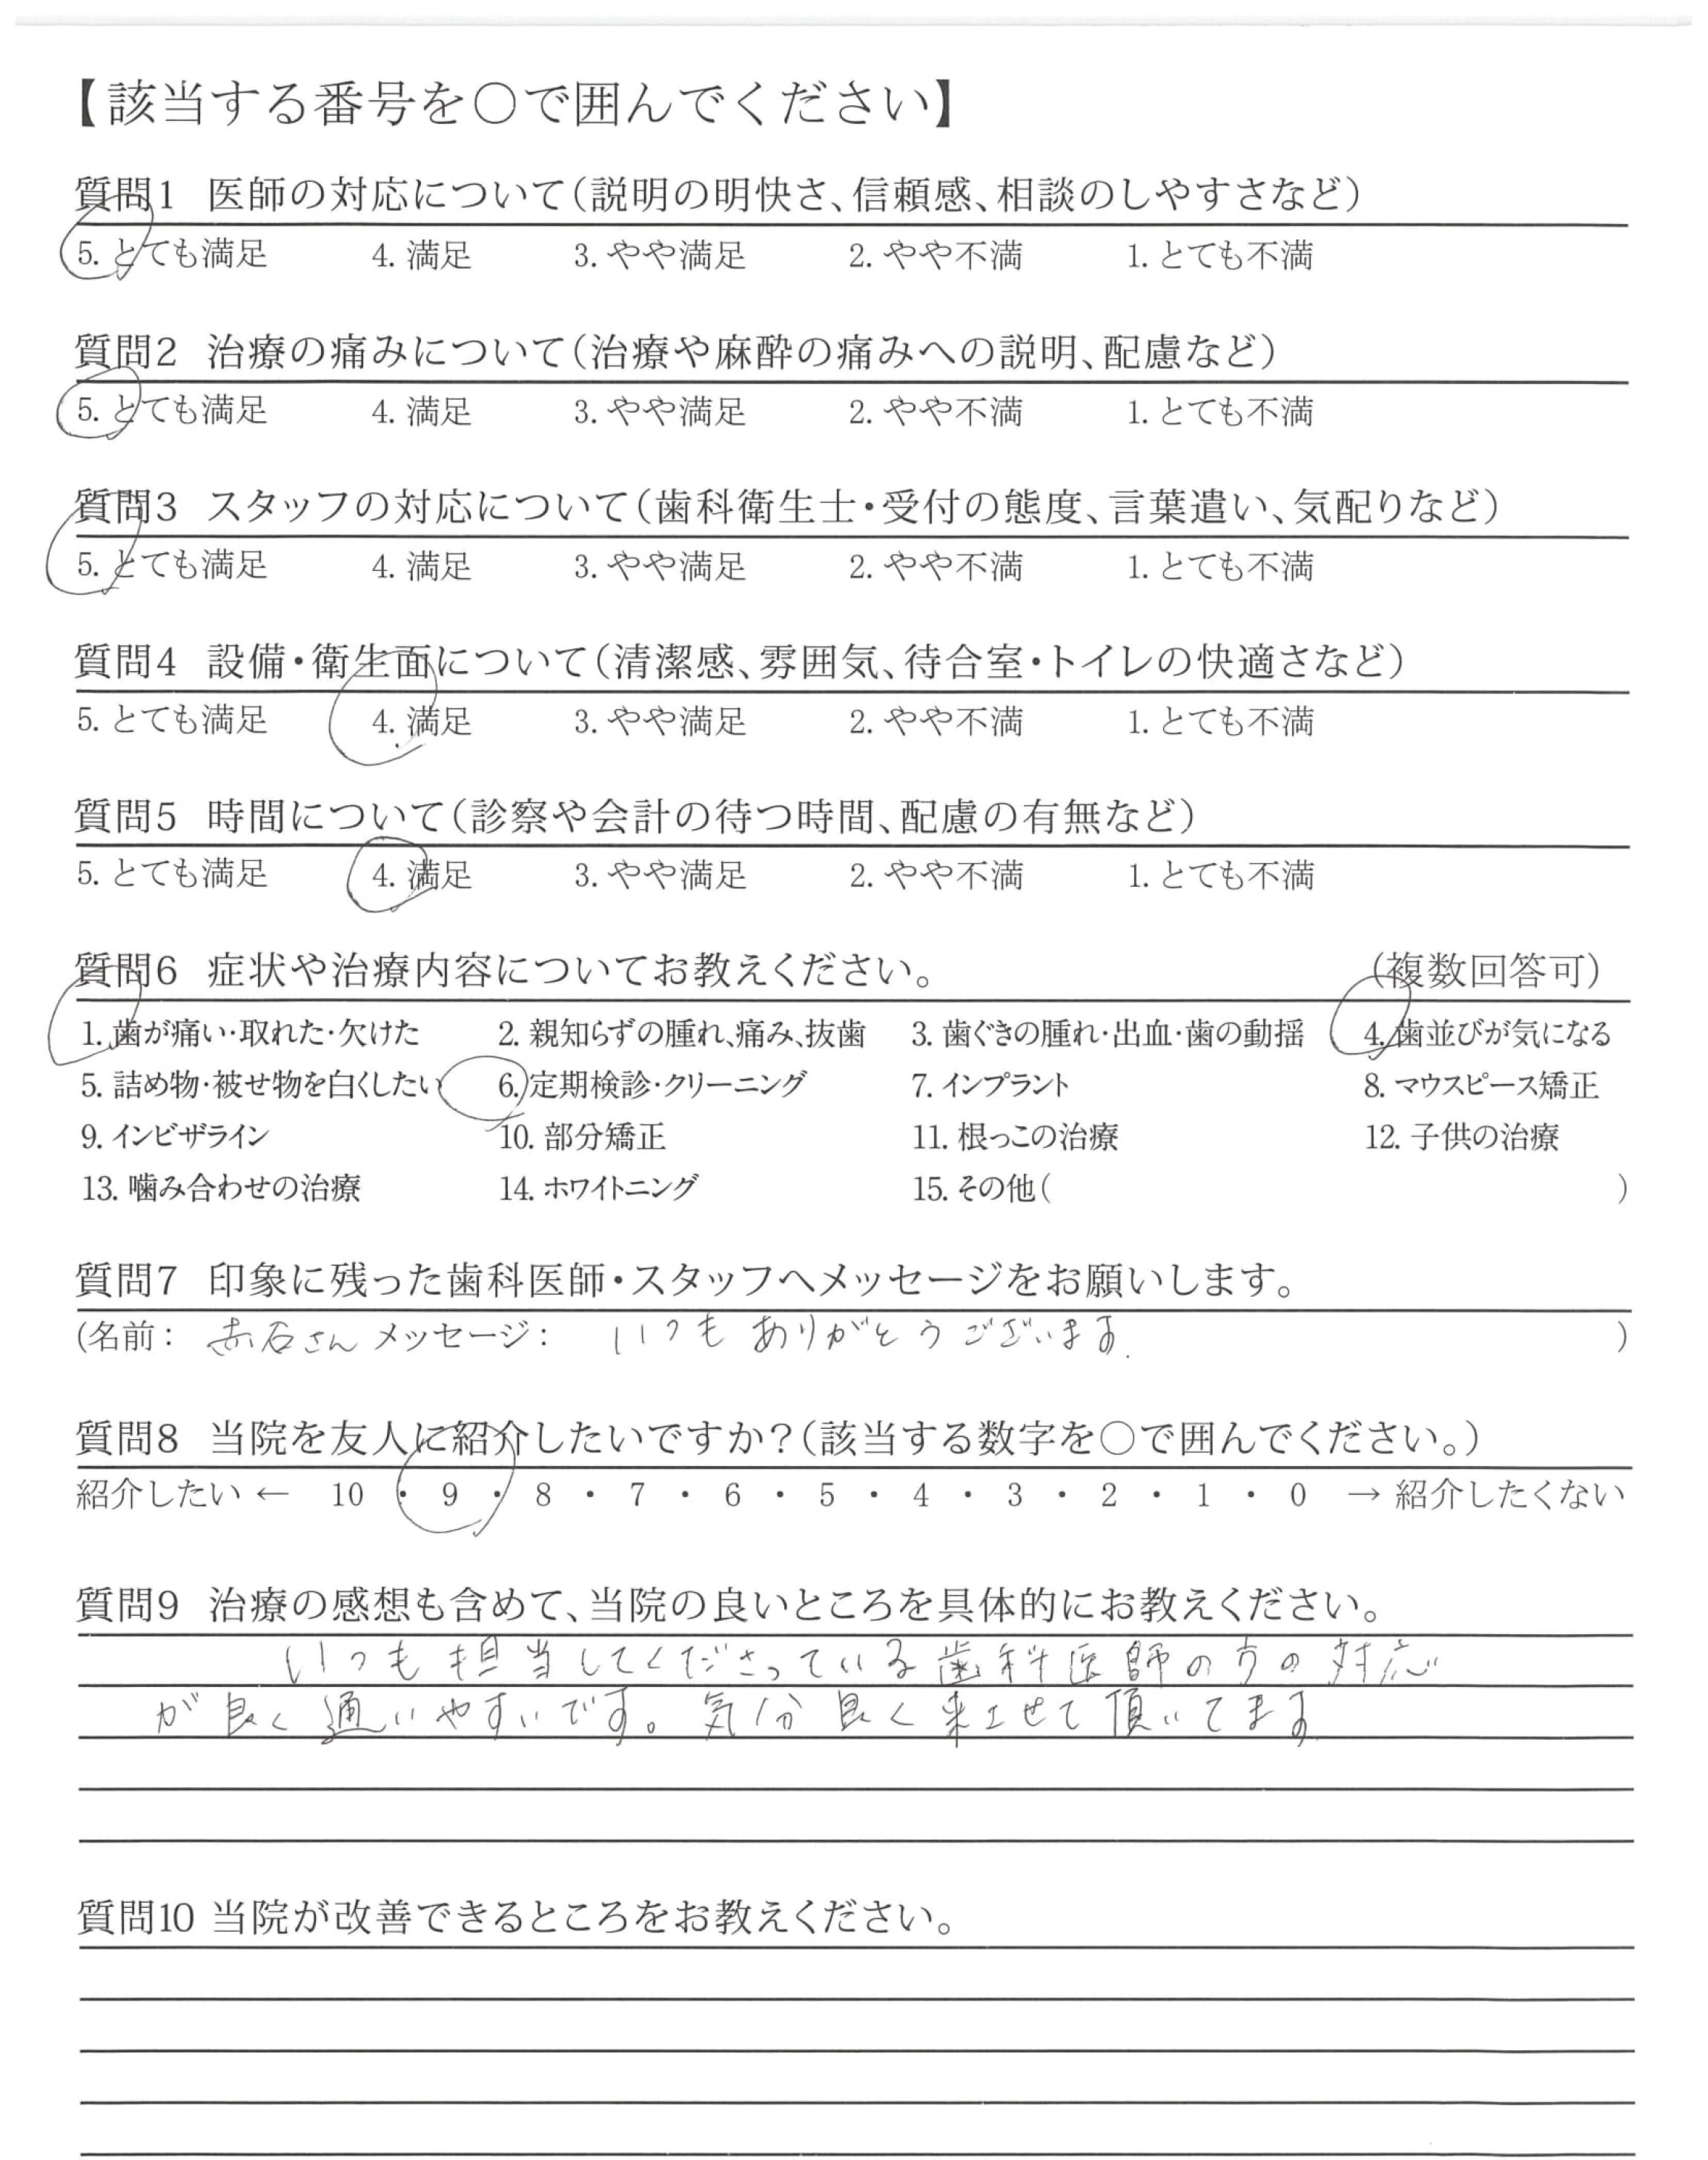 【該当する番号を○で囲んでください】
質問1 医師の対応について(説明の明快さ、信頼感、相談のしやすさなど)
5. とても満足 4. 満足 3. やや満足 2. やや不満 1. とても不満
質問2 治療の痛みについて(治療や麻酔の痛みへの説明、配慮など)
5. とても満足 4. 満足 3. やや満足 2. やや不満 1. とても不満
質問3 スタッフの対応について(歯科衛生士・受付の態度、言葉遣い、気配りなど)
5. とても満足 4. 満足 3. やや満足 2. やや不満 1. とても不満
質問4 設備・衛生面について(清潔感、雰囲気、待合室・トイレの快適さなど)
5. とても満足 4. 満足 3. やや満足 2. やや不満 1. とても不満
質問5 時間について(診察や会計の待つ時間、配慮の有無など)
5. とても満足 4. 満足 3. やや満足 2. やや不満 1. とても不満
質問6 症状や治療内容についてお教えください。 (複数回答可)
1. 歯が痛い・取れた・欠けた 2. 親知らずの腫れ、痛み、抜歯 3. 歯ぐきの腫れ・出血・歯の動揺 4. 歯並びが気になる
5. 詰め物・被せ物を白くしたい 6. 定期検診・クリーニング 7. インプラント 8. マウスピース矯正
9. インビザライン 10. 部分矯正 11. 根っこの治療 12. 子供の治療
13. 噛み合わせの治療 14. ホワイトニング 15. その他( )
質問7 印象に残った歯科医師・スタッフへメッセージをお願いします。
(名前: 赤石さん メッセージ: いつもありがとうございます. )
質問8 当院を友人に紹介したいですか?(該当する数字を○で囲んでください。)
紹介したい ← 10 ・ 9 ・ 8 ・ 7 ・ 6 ・ 5 ・ 4 ・ 3 ・ 2 ・ 1 ・ 0 → 紹介したくない
質問9 治療の感想も含めて、当院の良いところを具体的にお教えください。
いつも担当してくださっている歯科医師の方の対応
が良く通いやすいです。気分良く来させて頂いてます
質問10 当院が改善できるところをお教えください。